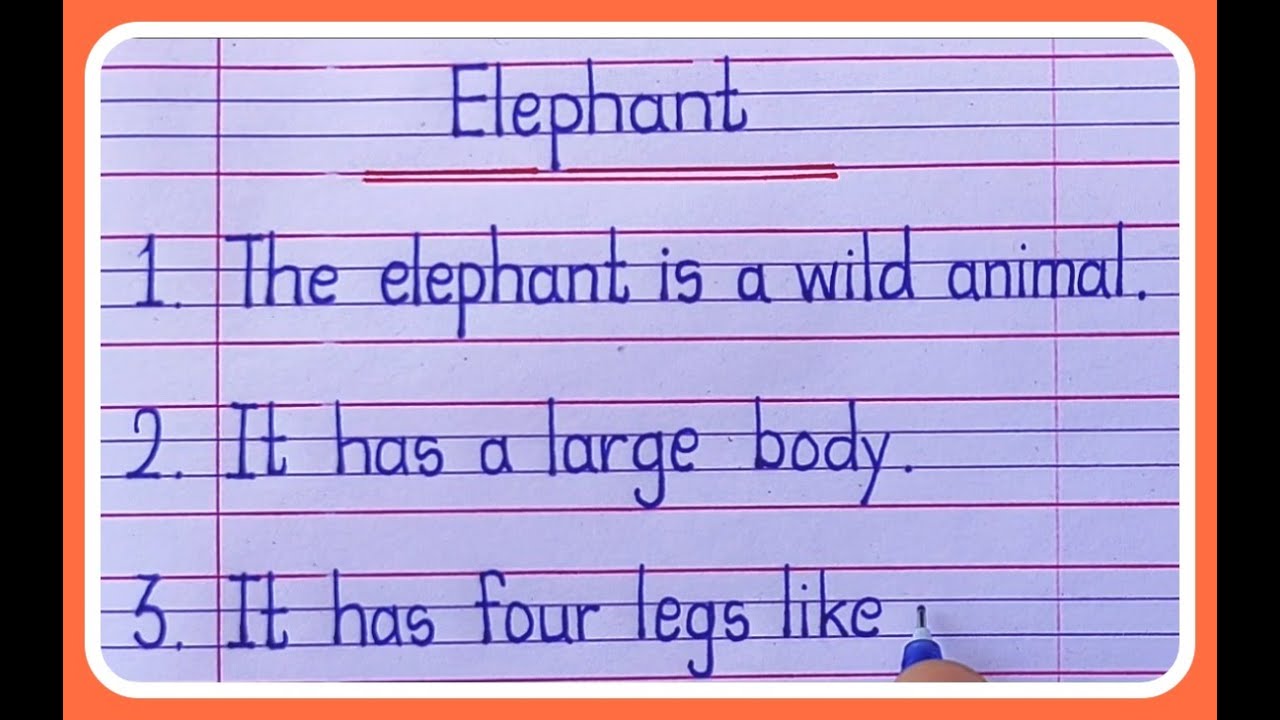 Elephant
1. The elephant is a wild animal.
2. It has a large body.
3. It has four legs like